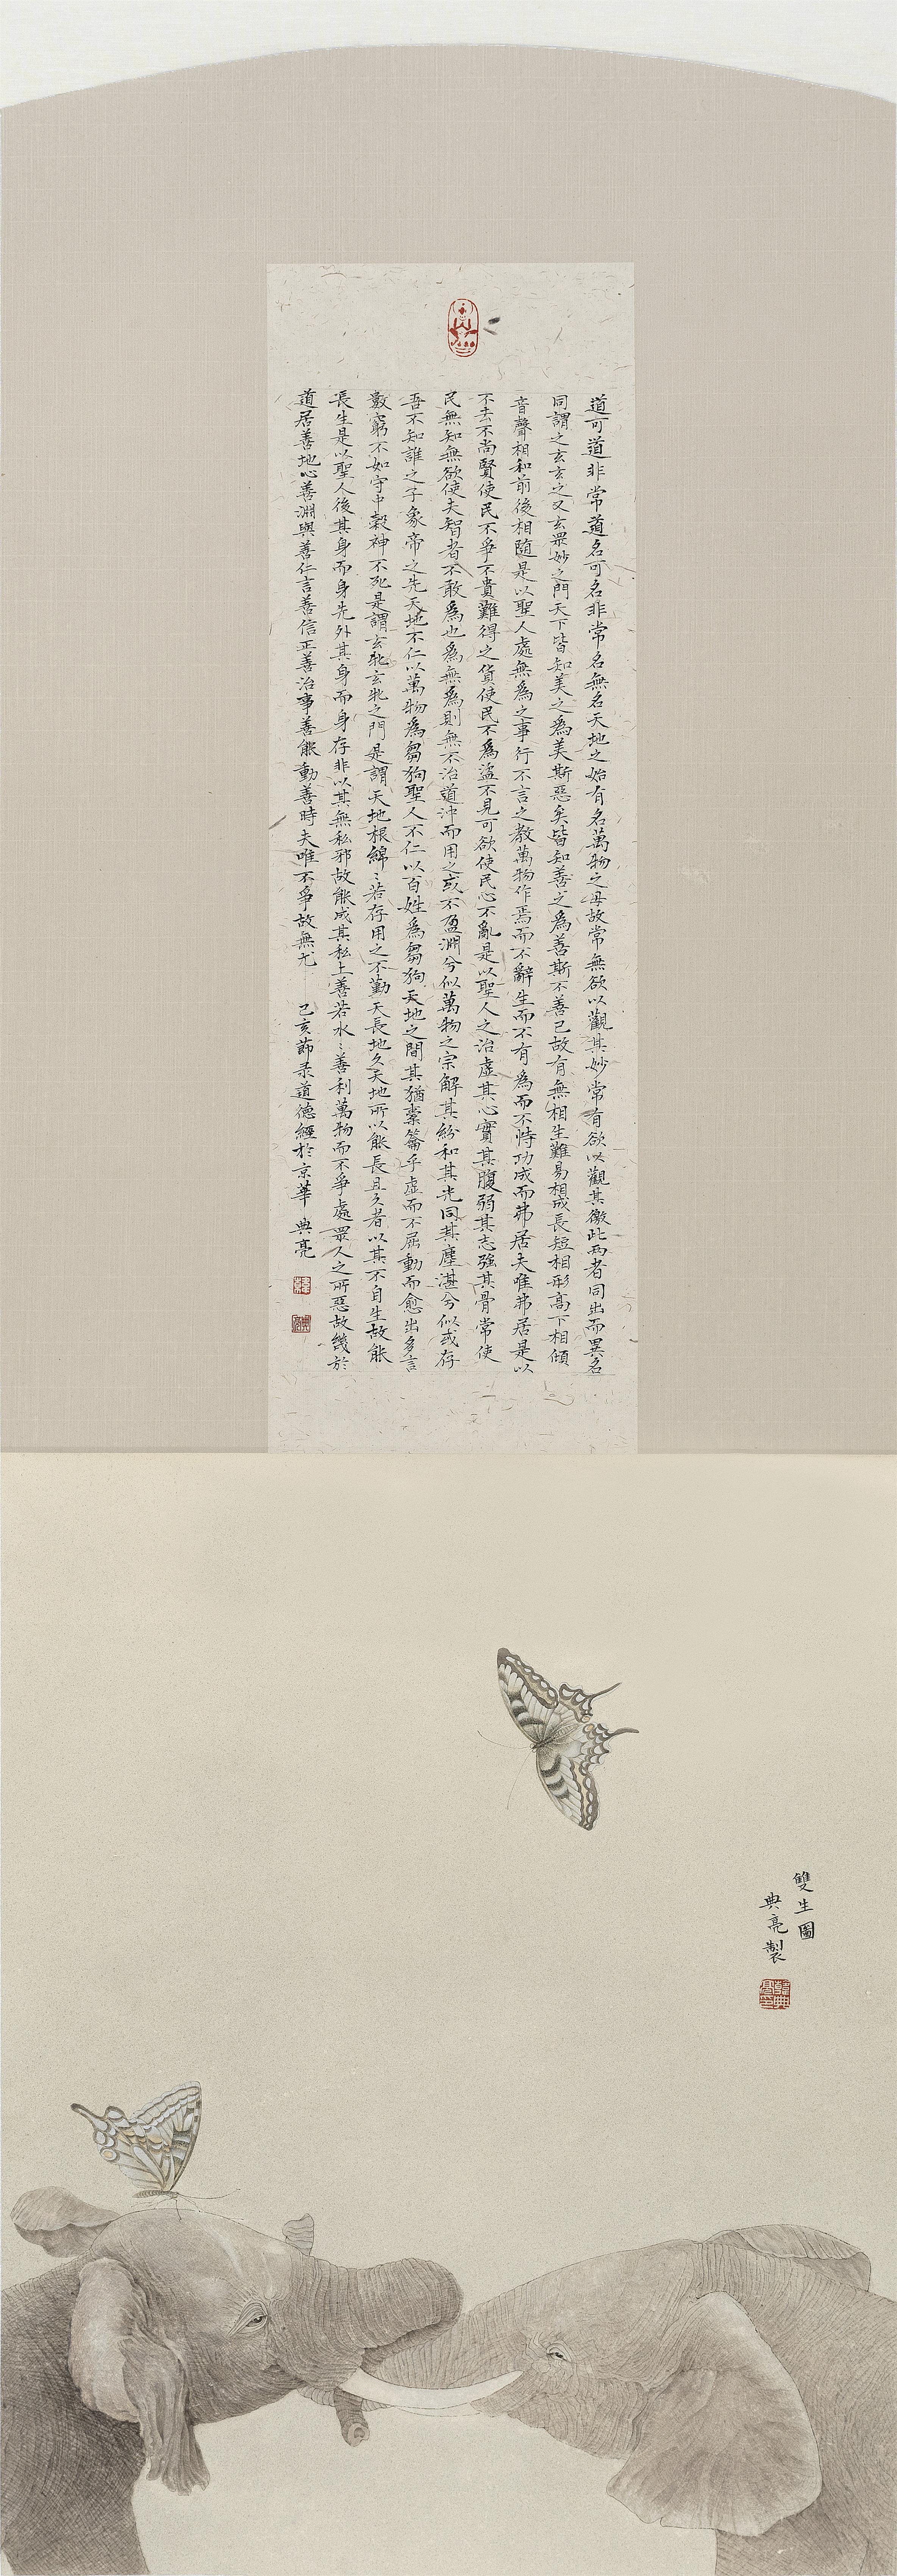 道可道非常道名可名非常名無名天地之始有名萬物之母故常無欲以觀其妙常有欲以觀其徼此兩者同出而異名
同謂之玄玄之又玄眾妙之門天下皆知美之爲美斯惡矣皆知善之爲善斯不善已故有無相生難易相成長短相形高下相傾
音聲相和前後相隨是以聖人處無爲之事行不言之教萬物作焉而不辭生而不有爲而不恃功成而弗居夫唯弗居是以
不去不尚賢使民不爭不貴難得之貨使民不爲盜不見可欲使民心不亂是以聖人之治虛其心實其腹弱其志強其骨常使
民無知無欲使夫智者不敢爲也爲無爲則無不治道沖而用之或不盈淵兮似萬物之宗解其紛和其光同其塵湛兮似或存
吾不知誰之子象帝之先天地不仁以萬物爲芻狗聖人不仁以百姓爲芻狗天地之間其猶橐籥乎虛而不屈動而愈出多言
數窮不如守中穀神不死是謂玄牝玄牝之門是謂天地根綿〻若存用之不勤天長地久天地所以能長且久者以其不自生故能
長生是以聖人後其身而身先外其身而身存非以其無私邪故能成其私上善若水〻善利萬物而不爭處眾人之所惡故幾於
道居善地心善淵與善仁言善信正善治事善能動善時夫唯不爭故無尤 己亥節录道德經於京華 典亮
雙生圖
典亮製